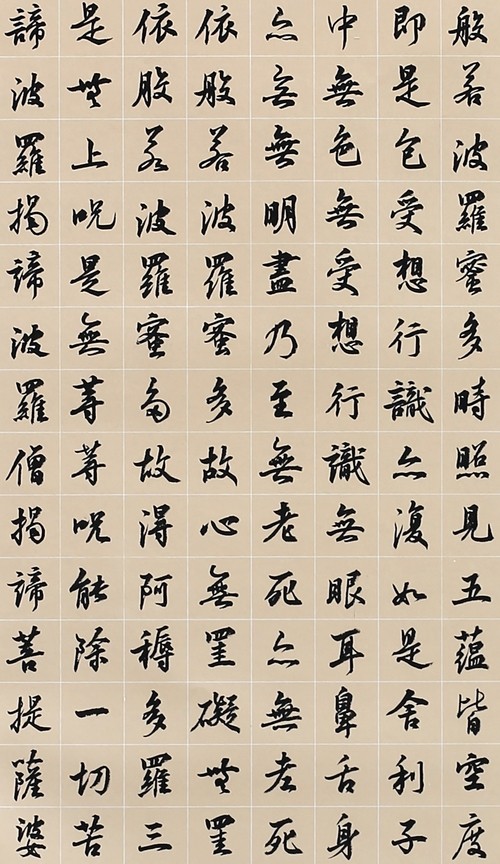 般若波羅蜜多時照見五蘊皆空度
即是色受想行識亦復如是舍利子
中無色無受想行識無眼耳鼻舌身
亦無無明盡乃至無老死亦無老死
依般若波羅蜜多故心無罣礙無罣
依般若波羅蜜多故得阿耨多羅三
是無上呪是無等等呪能除一切苦
諦波羅揭諦波羅僧揭諦菩提薩婆